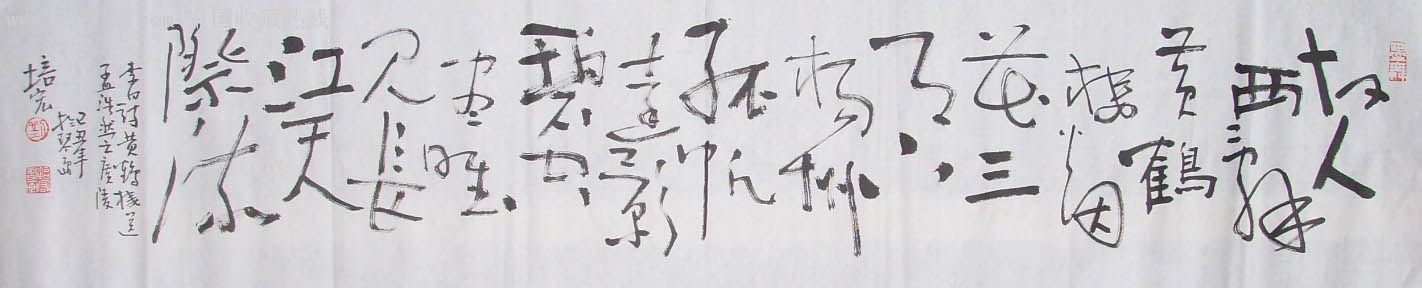 故人
西辞
黄鶴
楼烟
花三
月下
揚州
孤帆
遠影
碧空
尽唯
见長
江天
際流
李白詩黄鹤楼送
孟浩然之廣陵
己丑年
培宏
中国收藏热线